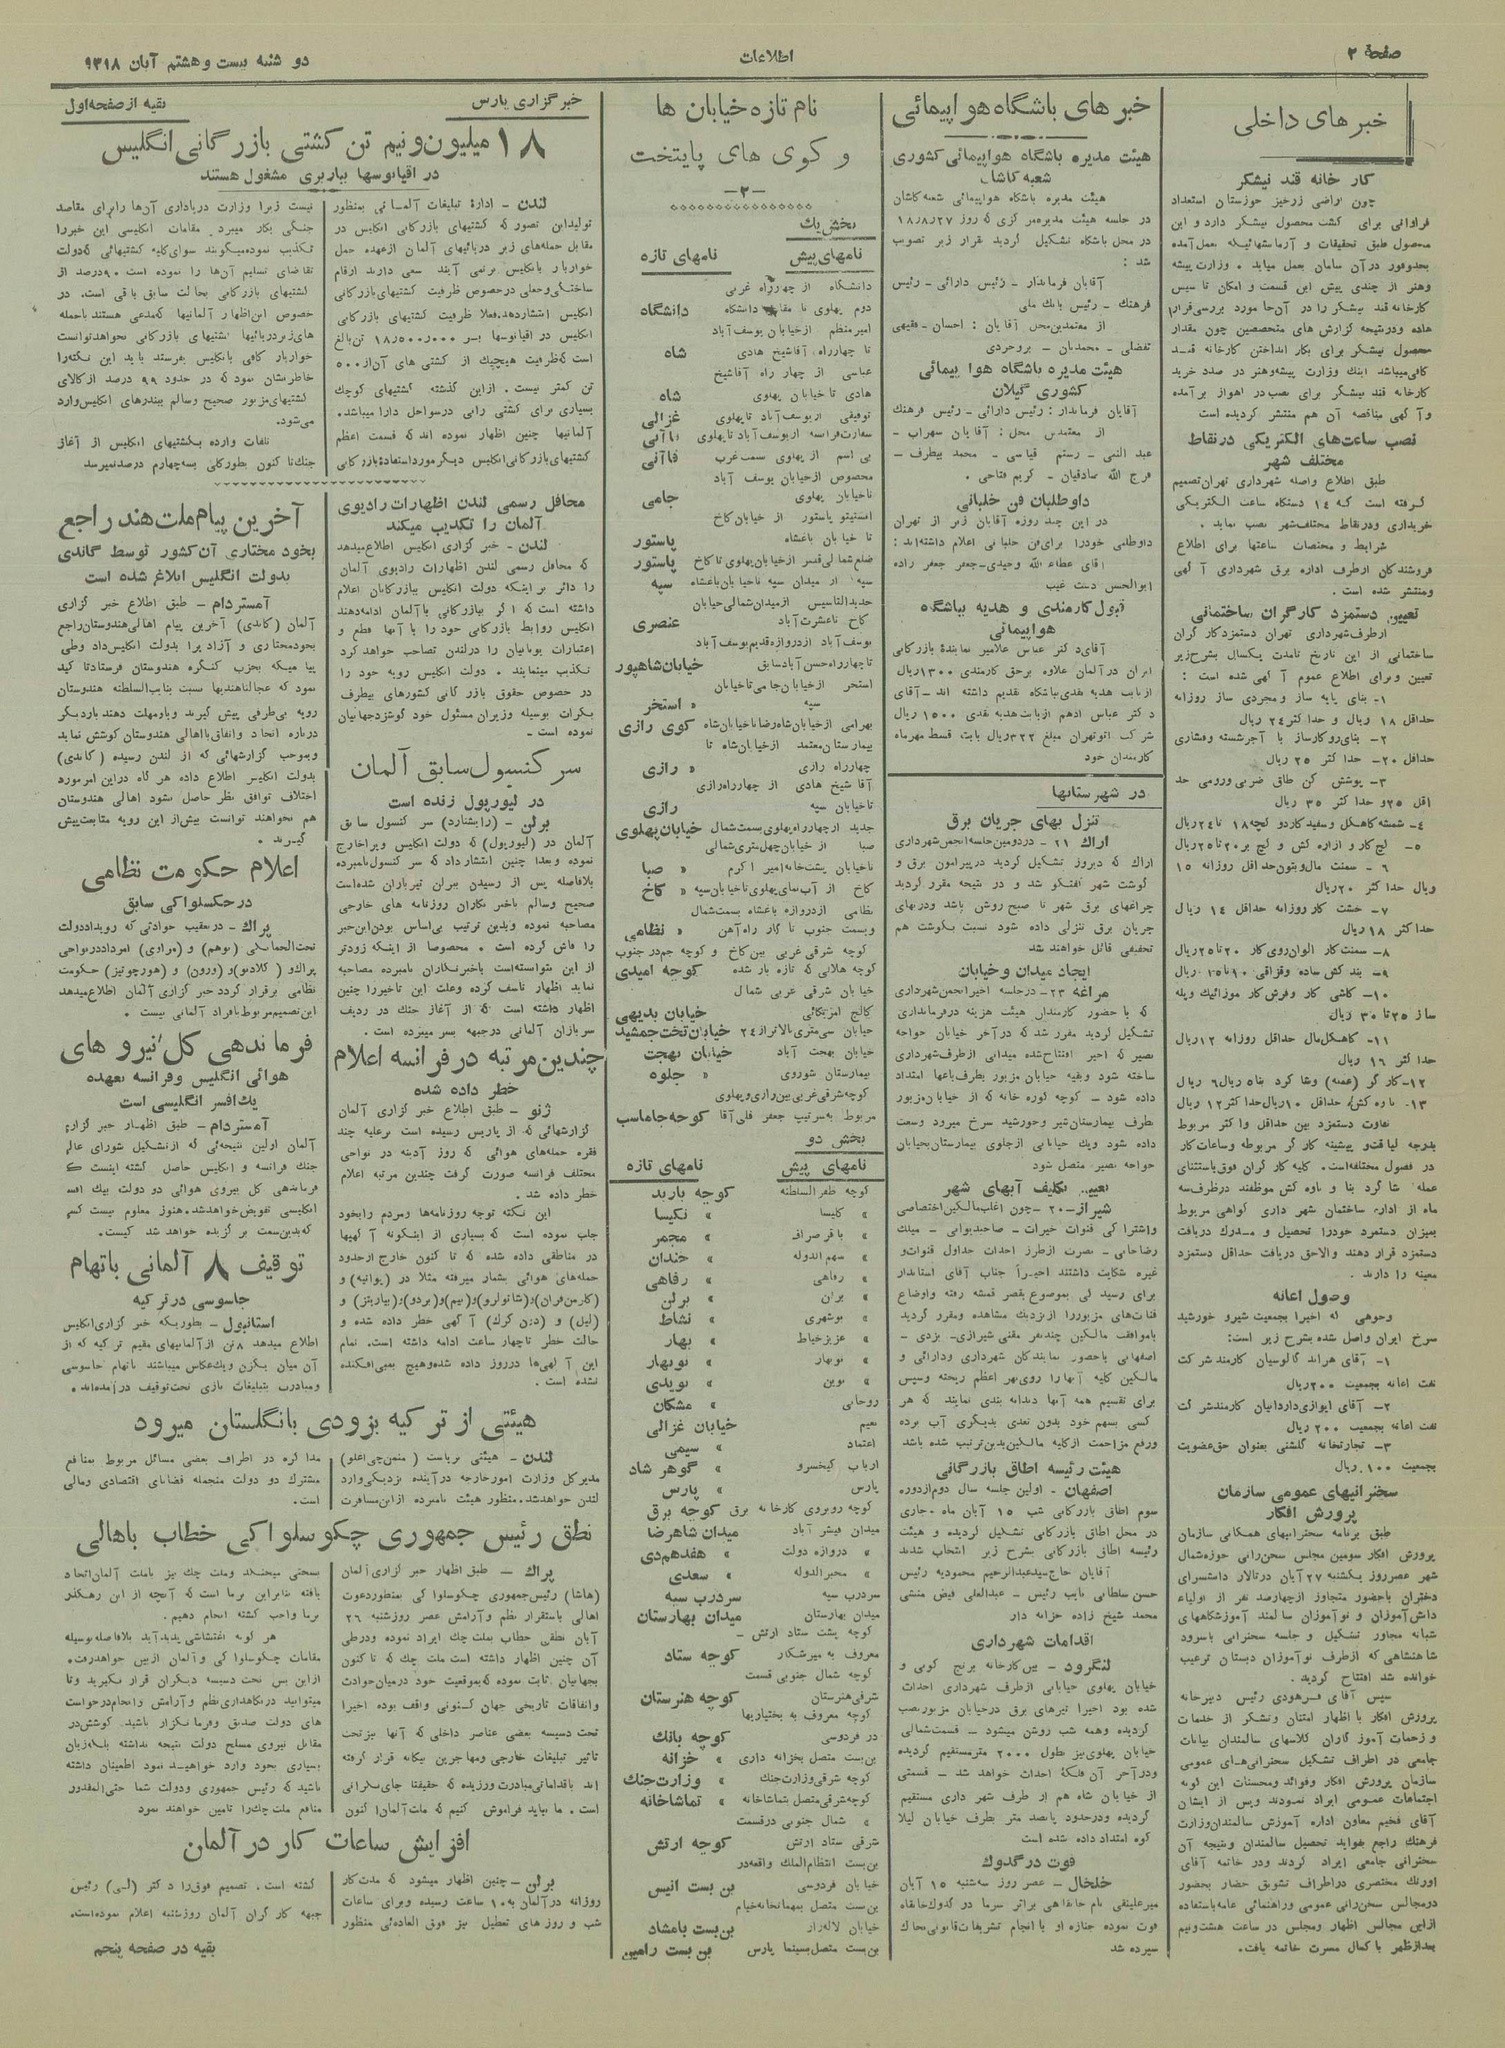 صفحهٔ ۲
اطلاعات
دو شنبه بیست و هشتم آبان ۱۳۱۸
خبر های داخلی
کار خانه قند نیشکر
چون اراضی زرخیز خوزستان استعداد
فراوانی برای کشت محصول نیشکر دارد و این
محصول طبق تحقیقات و آزمایشهائیکه بعمل آمده
بحدوفور در آن سامان بعمل میاید . وزارت پیشه
وهنر از چندی پیش این قسمت و امکان تاسیس
کارخانه قند نیشکر را در آن‌جا مورد بررسی قرار
داده ودرنتیجه گزارش های متخصصین چون مقدار
محصول نیشکر برای بکار انداختن کارخانه قند
کافی میباشد اینك وزارت پیشه‌وهنر در صدد خرید
کارخانه قند نیشکر برای نصب در اهواز بر آمده
و آگهی مناقصه آن هم منتشر گردیده است
نصب ساعت‌های الکتریکی در نقاط
مختلف شهر
طبق اطلاع واصله شهرداری تهران تصمیم
گرفته است که ۱۴ دستگاه ساعت الکتریکی
خریداری ودر نقاط مختلف شهر نصب نماید .
شرایط و مختصات ساعتها برای اطلاع
فروشندگان از طرف اداره برق شهرداری آگهی
ومنتشر شده است .
تعیین دستمزد کارگران ساختمانی
از طرف شهرداری تهران دستمزد کار گران
ساختمانی از این تاریخ تامدت یکسال بشرح زیر
تعیین و برای اطلاع عموم آگهی شده است :
۱- بنای پایه ساز و مجردی ساز روزانه
حداقل ۱۸ ریال و حدا کثر ۲۴ ریال
۲- بنای روکارساز با آجر شسته وفشاری
حداقل ۲۰- حدا کثر ۲۵ ریال
۳- پوشش کن طاق ضربی ورومی حد
اقل ۲۵ و حدا کثر ۳۵ ریال
۶ - سمنت مال وبتون حداقل روزانه ۱۵
ریال حدا کثر ۲۰ ریال
۷- خشت کار روزانه حداقل ۱۴ ریال
حدا کثر ۱۸ ریال
۸- سمنت کار الوان روی کار ۲۰ تا ۲۵ ریال
۱۰- کاشی کار و فرش کار موزائیك وپله
ساز ۲۵ تا ۳۰ ریال
۱۱- کاهگل‌مال حداقل روزانه ۱۲ ریال
حدا کثر ۱۶ ریال
تفاوت دستمزد بین حداقل واکثر مربوط
بدرجه لیاقت و پیشینه کار گر مربوطه وساعات کار
در فصول مختلفه است. کلیه کار گران فوق باستثنای
عمله شاگرد بنا و ناوه کش موظفند در ظرف سه
ماه از اداره ساختمان شهر داری گواهی مربوط
بمیزان دستمزد خود را تحصیل و مدرك دریافت
دستمزد قرار دهند والا حق دریافت حداقل دستمزد
معینه را دارند .
وصول اعانه
وجوهی که اخیرا بجمعیت شیرو خورشید
سرخ ایران واصل شده بشرح زیر است:
۱- آقای هراند گالوسیان کارمند شرکت
نفت اعانه بجمعیت ۲۰۰ ریال
نفت اعانه بجمعیت ۲۰۰ ریال
۳- تجارتخانه گلشنی بعنوان حق عضویت
بجمعیت ۱۰۰ ریال
سخنرانیهای عمومی سازمان
پرورش افکار
طبق برنامه سخنرانیهای همگانی سازمان
پرورش افکار سومین مجلس سخن‌رانی حوزه شمال
شهر عصر روز یکشنبه ۲۷ آبان در تالار دانشسرای
دختران باحضور متجاوز از چهارصد نفر از اولیاء
دانش‌آموزان و نوآموزان سالمند آموزشگاههای
شبانه مجاور تشکیل و جلسه سخنرانی باسرود
شاهنشاهی که از طرف نوآموزان دبستان ترغیب
خوانده شد افتتاح گردید.
سپس آقای فرهودی رئیس دبیرخانه
پرورش افکار با اظهار امتنان وتشکر از خدمات
و زحمات آموز گاران کلاسهای سالمندان بیانات
جامعی در اطراف تشکیل سخنرانی‌های عمومی
سازمان پرورش افکار وفوائد ومحسنات این گونه
اجتماعات عمومی ایراد نمودند وپس از ایشان
آقای فخیم معاون اداره آموزش سالمندان وزارت
فرهنگ راجع بفواید تحصیل سالمندان ونتیجه آن
سخنرانی جامعی ایراد کردند ودر خاتمه آقای
اورنك مختصری در اطراف تشویق حضار بحضور
در مجالس سخن‌رانی عمومی وراهنمائی عامه باستفاده
از این مجالس اظهار ومجلس در ساعت هشت ونیم
بعداز ظهر با کمال مسرت خاتمه یافت.
خبر های باشگاه هو اپیمائی
هیئت مدیره باشگاه هواپیمائی کشوری
شعبه کاشان
هیئت مدیره باشگاه هواپیمائی شعبه کاشان
در جلسه هیئت مدیره مرکزی که روز ۱۸/۸/۲۷
در محل باشگاه تشکیل گردید قرار زیر تصویب
شد :
آقایان فرماندار - رئیس دارائی - رئیس
فرهنگ - رئیس بانك ملی
از معتمدین محل آقایان : احسان - فقیهی
تفضلی - محمدیان - بروجردی
هیئت مدیره باشگاه هوا پیمائی
کشوری گیلان
آقایان فرماندار : رئیس دارائی - رئیس فرهنگ
از معتمدین محل : آقایان سهراب -
عبد النبی - رستم قیاسی - محمد بیطرف -
فرج الله صادقیان - کریم فتاحی .
داوطلبان فن خلبانی
در این چند روزه آقایان زیر از تهران
داوطلبی خود را برای فن خلبانی اعلام داشته‌اند :
آقای عطاءالله وحیدی - جعفر جعفر زاده
ابوالحسن دست غیب
قبول کارمندی و هدیه بباشگاه
هواپیمائی
آقای د کتر عباس علامیر نمایندۀ بازرگانی
ایران در آلمان علاوه برحق کارمندی ۱۳۰۰ ریال
از بابت هدیه نقدی بباشگاه تقدیم داشته اند - آقای
د کتر عباس ادهم از بابت هدیه نقدی ۱۵۰۰ ریال
شرکت اتوتهران مبلغ ۳۲۲ ریال بابت قسط مهرماه
کارمندان خود
در شهرستانها
تنزل بهای جریان برق
اراك ۲۱ - در دومین جلسه انجمن شهرداری
اراك که دیروز تشکیل گردید در پیرامون برق و
گوشت شهر گفتگو شد و در نتیجه مقرر گردید
چراغهای برق شهر تا صبح روشن باشد ودر بهای
جریان برق تنزلی داده شود نسبت بگوشت هم
تخفیفی قائل خواهند شد
ایجاد میدان وخیابان
مراغه ۲۳ - در جلسه اخیر انجمن شهرداری
که با حضور کارمندان هیئت هزینه در فرمانداری
تشکیل گردید مقرر شد که در آخر خیابان خواجه
نصیر که اخیر افتتاح شده میدانی از طرف شهرداری
ساخته شود وبقیه خیابان مزبور بطرف باغها امتداد
داده شود - کوچه کوره خانه که از خیابان مزبور
بطرف بیمارستان شیر وخورشید سرخ میرود وسعت
داده شود ویك خیابانی از جلوی بیمارستان بخیابان
خواجه نصیر متصل شود
تعیین تکلیف آبهای شهر
شیراز - ۲۰ - چون اغلب مالکین اختصاصی
واشتراکی قنوات خیرات - صاحبدیوانی - میك
غیره شکایت داشتند اخیراً جناب آقای استاندار
برای رسید گی بموضوع بقصر قمشه رفته واوضاع
قنات‌های مزبور را از نزدیك مشاهده ومقرر گردید
باموافقت مالکین چند نفر مقنی شیرازی - یزدی -
اصفهانی باحضور نمایندگان شهرداری ودارائی و
مالکین کلیه آبها را روی نهر اعظم ریخته وسپس
برای تقسیم همه آنها دهانه بندی نمایند که هر
کسی بسهم خود بدون تعدی بدیگری آب برده
ورفع مزاحمت از کلیه مالکین بدین ترتیب شده باشد
هیئت رئیسه اطاق بازرگانی
اصفهان - اولین جلسه سال دوم از دوره
سوم اطاق بازرگانی شب ۱۵ آبان ماه جاری
در محل اطاق بازرگانی تشکیل گردیده و هیئت
رئیسه اطاق بازرگانی بشرح زیر انتخاب شدند
آقایان حاج سید عبدالرحیم محمودیه رئیس
حسن سلطانی نایب رئیس - عبدالعلی فیض منشی
محمد شیخ زاده خزانه دار
اقدامات شهرداری
لنگرود - بین کارخانه برنج کوبی و
خیابان پهلوی خیابانی از طرف شهرداری احداث
شده بود اخیرا تیرهای برق در خیابان مزبور نصب
گردیده وهمه شب روشن میشود - قسمت شمالی
خیابان پهلوی نیز بطول ۲۰۰۰ متر مستقیم گردیده
ودر آخر آن فلکۀ احداث خواهد شد - قسمتی
از خیابان شاه هم از طرف شهر داری مستقیم
گردیده ودرحدود پانصد متر بطرف خیابان لیلا
کوه امتداد داده شده است
فوت در گدوك
خلخال - عصر روز سه‌شنبه ۱۵ آبان
فوت نموده جنازه او با انجام تشریفات قانونی بخاك
سپرده شد
نام تازه خیابان ها
و کوی های پایتخت
- ۲ -
بخش یك
نامهای پیش نامهای تازه
دانشگاه از چهارراه غربی
دانشگاه
امیر منظم از خیابان یوسف آباد
تا چهارراه آقا شیخ هادی شاه
عباسی از چهار راه آقا شیخ
هادی تا خیابان پهلوی شاه
توفیقی از یوسف آباد تا پهلوی غزالی
سفارت فرانسه از یوسف آباد تا پهلوی
بی اسم از پهلوی سمت غرب قاآنی
مخصوص از خیابان یوسف آباد
تا خیابان پهلوی جامی
انستیتو پاستور از خیابان کاخ
تا خیابان باغشاه پاستور
ضلع شمالی قصر از خیابان پهلوی تا کاخ پاستور
سپه از میدان سپه تا خیابان باغشاه سپه
جدید التاسیس از میدان شمالی خیابان
کاخ تا عشرت آباد عنصری
یوسف آباد از دروازه قدیم یوسف آباد
تا چهارراه حسن آباد سابق خیابان شاهپور
استخر از خیابان جامی تا خیابان
سپه » استخر
بهرامی از خیابان شاه رضا تا خیابان شاه کوی رازی
بیمارستان معتمد از خیابان شاه تا
چهارراه رازی » رازی
آقا شیخ هادی از چهارراه رازی
تا خیابان سپه رازی
جدید از چهارراه پهلوی بسمت شمال خیابان پهلوی
صبا از خیابان چهل متری شمالی
تا خیابان پشت خانه امیر اکرم » صبا
کاخ از آب نمای پهلوی تا خیابان سپه » کاخ
نظامی از دروازه باغشاه بسمت شمال
وبسمت جنوب تا گار راه آهن » نظامی
کوچه شرقی غربی بین کاخ و کوچه جم در جنوب
کوچه هلالی که تازه باز شده کوچه امیدی
خیابان شرقی غربی شمال
کالج امریکائی خیابان بدیهی
خیابان سی متری بالاتر از ۲۴ خیابان تخت جمشید
خیابان بهجت آباد خیابان بهجت
بیمارستان شوروی » جلوه
کوچه شرقی غربی بین رازی و پهلوی
مربوط به سرتیپ جعفر قلی آقا کوچه جاماسب
بخش دو
نامهای پیش نامهای تازه
کوچه ظفر السلطنه کوچه باربد
» کلیسا » نکیسا
» باقر صراف » مجمر
» سهم الدوله » خندان
» رفاهی » رفاهی
» برلن » برلن
» بوشهری » نشاط
» عزیز خیاط » بهار
» نوبهار » نوبهار
» نوین » نویدی
روحانی » مشکان
نعیم خیابان غزالی
اعتماد » سیمی
ارباب کیخسرو » گوهر شاد
پارس » پارس
کوچه روبروی کارخانه برق کوچه برق
میدان فیشر آباد میدان شاهرضا
» دروازه دولت » هفدهم دی
» مخبرالدوله » سعدی
سردرب سپه سردرب سپه
میدان بهارستان میدان بهارستان
کوچه پشت ستاد ارتش -
معروف به میر شکار کوچه ستاد
کوچه شمال جنوبی قسمت
شرقی هنرستان کوچه هنرستان
کوچه معروف به بختیاریها
در فردوسی کوچه بانك
بن‌بست متصل بخزانه داری » خزانه
کوچه شرقی وزارت جنك » وزارت جنك
کوچه شرقی متصل تماشاخانه » تماشاخانه
» شمال جنوبی در قسمت
شرقی ستاد ارتش کوچه ارتش
بن‌بست انتظام الملك واقعه در
خیابان فردوسی بن بست انیس
بن‌بست متصل بمهمانخانه خیام
خیابان لاله‌زار بن‌بست بامشاد
بن‌بست متصل بسینما پارس بن بست رامین
خبر گزاری پارس
بقیه از صفحه اول
۱۸ میلیون و نیم تن کشتی بازر گانی انگلیس
در اقیانوسها بباربری مشغول هستند
لندن - ادارۀ تبلیغات آلمانی بمنظور
تولید این تصور که کشتیهای بازرگانی انگلیس در
مقابل حمله‌های زیر دریائیهای آلمان از عهده حمل
خواربار بانگلیس برنمی آیند سعی دارند ارقام
ساختگی وجعلی در خصوص ظرفیت کشتیهای بازرگانی
انگلیس انتشار دهد. فعلا ظرفیت کشتیهای بازرگانی
انگلیس در اقیانوسها بر ۱۸,۵۰۰,۰۰۰ تن بالغ
است که ظرفیت هیچیك از کشتی های آن از ۵۰۰
تن کمتر نیست . از این گذشته کشتیهای کوچك
بسیاری برای کشتی رانی در سواحل دارا میباشد.
آلمانیها چنین اظهار نموده اند که قسمت اعظم
کشتیهای بازرگانی انگلیس دیگر مورد استفادۀ بازرگانی
نیست زیرا وزارت دریاداری آن‌ها را برای مقاصد
جنگی بکار میبرد . مقامات انگلیسی این خبر را
تکذیب نموده میگویند سوای کلیه کشتیهائی که دولت
تقاضای تسلیم آن‌ها را نموده است ۹۰ درصد از
کشتیهای بازرگانی بحالت سابق باقی است. در
خصوص این اظهار آلمانیها که مدعی هستند با حمله
های زیر دریائیها کشتیهای بازرگانی نخواهد توانست
خواربار کافی بانگلیس بفرستد باید این نکته را
خاطر نشان نمود که در حدود ۹۹ درصد از کالای
کشتیهای مزبور صحیح وسالم ببندرهای انگلیس وارد
می‌شود.
تلفات وارده بکشتیهای انگلیس از آغاز
جنك تا کنون بطور کلی بسه چهارم درصد نمیرسد
محافل رسمی لندن اظهارات رادیوی
آلمان را تکذیب میکند
لندن - خبر گزاری انگلیس اطلاع میدهد
که محافل رسمی لندن اظهارات رادیوی آلمان
را دائر بر اینکه دولت انگلیس ببازرگانان اعلام
داشته است که اگر ببازرگانی با آلمان ادامه دهند
انگلیس روابط بازرگانی خود را با آنها قطع و
اعتبارات یونانیان را در لندن تصاحب خواهد کرد
تکذیب مینمایند . دولت انگلیس رویه خود را
در خصوص حقوق بازر گانی کشورهای بیطرف
بکرات بوسیله وزیران مسئول خود گوشزد جهانیان
نموده است -
سر کنسول سابق آلمان
در لیورپول زنده است
برلن - (راینشارد) سر کنسول سابق
آلمان در (لیورپول) که دولت انگلیس ویرا خارج
نموده وبعدا چنین انتشار داد که سر کنسول نامبرده
بلافاصله پس از رسیدن ببرلن تیرباران شده است
صحیح وسالم باخبر نگاران روزنامه های خارجی
مصاحبه نموده وبدین ترتیب بی‌اساس بودن این خبر
را فاش کرده است . مخصوصا از اینکه زودتر
از این نتوانسته است باخبر نگاران نامبرده مصاحبه
نماید اظهار تاسف کرده وعلت این تاخیر را چنین
اظهار داشته است که از آغاز جنك در ردیف
سربازان آلمانی در جبهه بسر میبرده است.
چندین مرتبه در فرانسه اعلام
خطر داده شده
ژنو - طبق اطلاع خبر گزاری آلمان
گزارشهائی که از پاریس رسیده است بر علیه چند
فقره حمله‌های هوائی که روز آدینه در نواحی
مختلف فرانسه صورت گرفت چندین مرتبه اعلام
خطر داده شد .
این نکته توجه روزنامه‌ها ومردم را بخود
جلب نموده است که بسیاری از اینگونه آگهیها
در مناطقی داده شده که تا کنون خارج از حدود
حمله‌های هوائی بشمار میرفته مثلا در (پواتیه) و
حالت خطر تا چهار ساعت ادامه داشته است. تمام
این آگهی‌ها در روز داده شده و هیچ بمبی افکنده
نشده است .
آخرین پیام ملت هند راجع
بخود مختاری آن کشور توسط گاندی
بدولت انگلیس ابلاغ شده است
آمستردام - طبق اطلاع خبر گزاری
آلمان (گاندی) آخرین پیام اهالی هندوستان راجع
بخود مختاری و آزادی را بدولت انگلیس داد وطی
پیامیکه بحزب کنگره هندوستان فرستاد تاکید
نمود که عجالتا هندیها نسبت بنایب السلطنه هندوستان
رویه بی‌طرفی پیش گیرند وباو مهلت دهند بار دیگر
درباره اتحاد واتفاق با اهالی هندوستان کوشش نماید
وبموجب گزارشهائی که از لندن رسیده (گاندی)
بدولت انگلیس اطلاع داده هر گاه در این امر مورد
اختلاف توافق نظر حاصل نشود اهالی هندوستان
هم نخواهند توانست بیش از این رویه متابعت پیش
گیرند .
اعلام حکومت نظامی
در چکسلواکی سابق
پراك - در تعقیب حوادثی که رویداد دولت
نظامی برقرار گردد خبر گزاری آلمان اطلاع میدهد
این تصمیم مربوط بافراد آلمانی نیست .
فرماندهی کل نیرو های
هوائی انگلیس وفرانسه بعهده
یك افسر انگلیسی است
آمستردام - طبق اظهار خبر گزاری
آلمان اولین نتیجه‌ئی که از تشکیل شورای عالی
جنك فرانسه و انگلیس حاصل گشته اینست که
فرماندهی کل نیروی هوائی دو دولت بیك افسر
انگلیسی تفویض خواهد شد. هنوز معلوم نیست کسی
که بدین سمت بر گزیده خواهد شد کیست.
توقیف ۸ آلمانی باتهام
جاسوسی در ترکیه
استانبول - بطوریکه خبر گزاری انگلیس
اطلاع میدهد ۸ تن از آلمانیهای مقیم ترکیه که از
آن میان یکزن ویك عکاس میباشند باتهام جاسوسی
ومبادرت بتبلیغات نازی تحت توقیف در آمده‌اند.
هیئتی از ترکیه بزودی بانگلستان میرود
لندن - هیئتی بریاست ( منمن‌جی‌اغلو)
مدیر کل وزارت امور خارجه در آینده نزدیکی وارد
لندن خواهد شد. منظور هیئت نامبرده از این مسافرت
مذاکره در اطراف بعضی مسائل مربوط بمنافع
مشترك دو دولت منجمله قضایای اقتصادی ومالی
است .
نطق رئیس جمهوری چکوسلواکی خطاب باهالی
پراك - طبق اظهار خبر گزاری آلمان
(هاشا) رئیس جمهوری چکوسلواکی بمنظور دعوت
اهالی باستقرار نظم و آرامش عصر روز شنبه ۲۶
آبان نطقی خطاب بملت چك ایراد نموده ودر طی
آن چنین اظهار داشته است ملت چك که تا کنون
بجهانیان ثابت نموده که بموقعیت خود در میان حوادث
واتفاقات تاریخی جهان کنونی واقف بوده اخیرا
تحت دسیسه بعضی عناصر داخلی که آنها نیز تحت
تاثیر تبلیغات خارجی ومهاجرین بیگانه قرار گرفته
اند باقداماتی مبادرت ورزیده که حقیقتا جای نگرانی
است . ما نباید فراموش کنیم که ملت آلمان اکنون
بسختی میجنگد وملت چك نیز باملت آلمان اتحاد
یافته بنابراین برما است که آنچه از این رهگذر
برما واجب گشته انجام دهیم.
هر گونه اغتشاشی پدید آید بلافاصله بوسیله
مقامات چکوسلواکی و آلمان از بین خواهد رفت.
از این پس تحت دسیسه دیگران قرار نگیرید وتا
میتوانید در نگاهداری نظم و آرامش وانجام درخواست
های دولت صدیق وفرمانگزار باشید. کوشش در
مقابل نیروی مسلح دولت نتیجه نداشته بلکه زیان
بسیاری بخود وارد خواهید نمود اطمینان داشته
باشید که رئیس جمهوری ودولت شما حتی‌المقدور
منافع ملت چك را تامین خواهند نمود
افزایش ساعات کار در آلمان
برلن - چنین اظهار میشود که مدت کار
روزانه در آلمان به ۱۰ ساعت رسیده وبرای ساعات
شب و روز های تعطیل نیز فوق العاده‌ئی منظور
گشته است . تصمیم فوق را د کتر (لی) رئیس
جبهه کار گران آلمان روز شنبه اعلام نموده‌است.
بقیه در صفحه پنجم